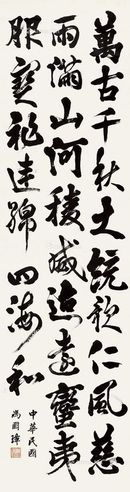 萬古千秋大統歌仁風慈
雨滿山河稜威迨遠蠻夷
服寶祚連綿四海和
中華民國
馮國璋